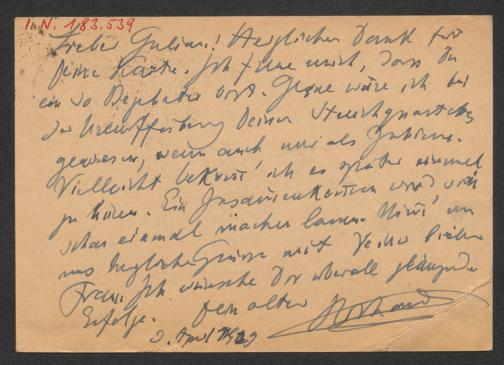 I.N. 183.539
Lieber Julius! Herzlichen Dank für
Deine Karte. Ich freue mich, dass Du
ein so Begabter bist. Gerne wäre ich bei
der Uraufführung Deines Streichquartettes
gewesen, wenn auch nur als
Vielleicht bekomme ich es später einmal
zu hören. Ein Zusammenkommen wird sich
schon einmal machen lassen. Nimm von
uns herzliche Grüsse mit Deiner lieben
Frau. Ich wünsche Dir überall glänzende
Erfolge. Dein alter
2. April 1929